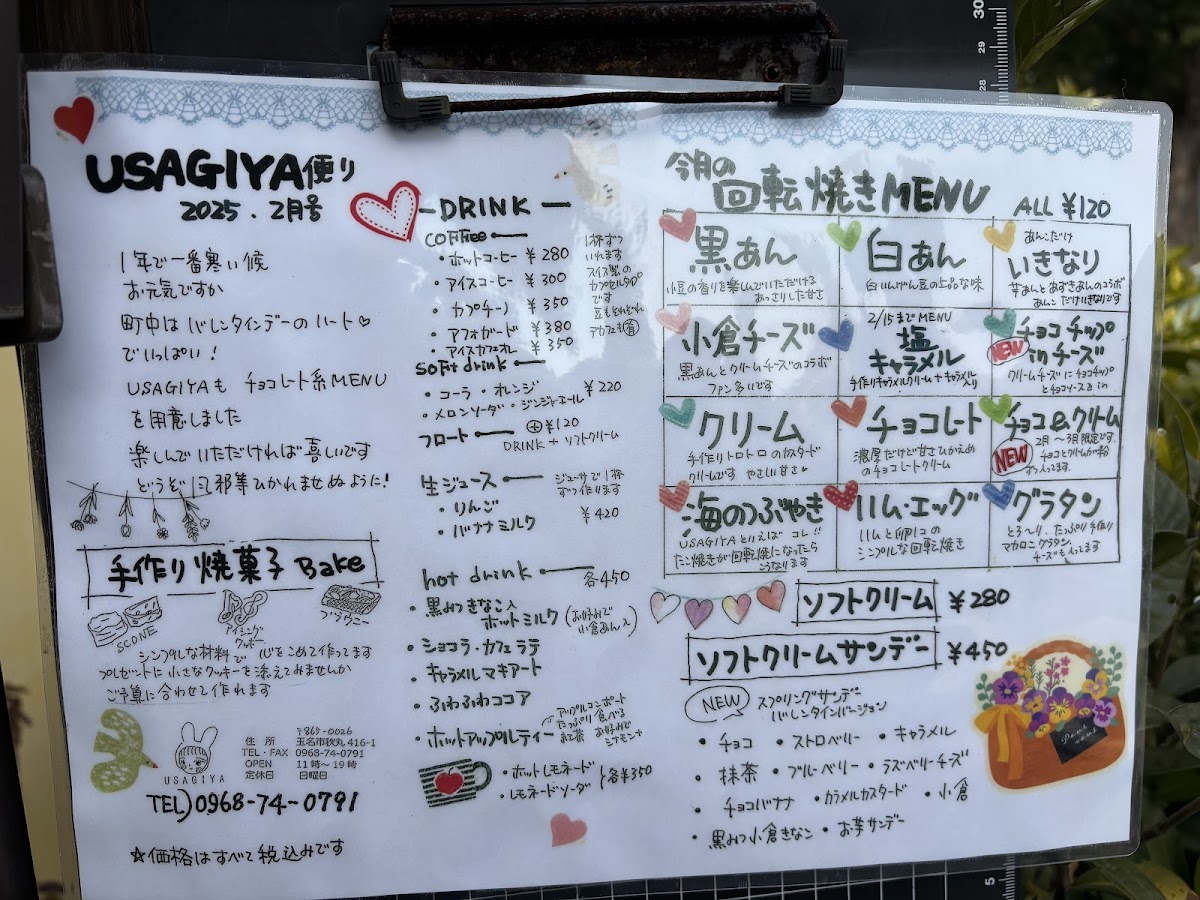 USAGIYA便り
2025.2月号
1年で一番寒い候
お元気ですか
町中はバレンタインデーのハート♡
でいっぱい!
USAGIYAもチョコレート系MENU
を用意しました
楽しんでいただければ喜しいです
どうぞ風邪等ひかれませぬように!
手作り焼菓子 Bake
SCONE
アイシングクッキー
ブラウニー
シンプルな材料で心をこめて作ってます
プレゼントに小さなクッキーを添えてみませんか
ご予算に合わせて作れます
USAGIYA
〒865-0026
住所 玉名市秋丸416-1
TEL・FAX 0968-74-0791
OPEN 11時〜19時
定休日 日曜日
TEL)0968-74-0791
☆価格はすべて税込みです
DRINK
coffee
・ホットコーヒー ¥280
・アイスコーヒー ¥300
・カプチーノ ¥350
・アフォガード ¥380
・アイスカフェオレ ¥350
1杯ずつ
いれます
スイス製の
カプセルタイプ
です
豆もそれぞれ
デカフェも有
soft drink
・コーラ・オレンジ ¥220
・メロンソーダ・ジンジャーエール
フロート ⊕¥120
DRINK+ソフトクリーム
生ジュース ジューサーで1杯
ずつ作ります
・りんご ¥420
・バナナミルク
hot drink 各450
・黒みつきなこ入
ホットミルク(お好みで
小倉あん入)
・ショコラ・カフェラテ
・キャラメルマキアート
・ふわふわココア
・ホットアップルティー
アップルコンポート
たっぷり食べる
紅茶 お好みで
シナモン
・ホットレモネード
・レモネードソーダ 各¥350
今月の回転焼きMENU ALL ¥120
黒あん
小豆の香りを楽しんでいただける
あっさりした甘さ
白あん
白いんげん豆の上品な味
あんこだけ
いきなり
芋あんとあずきあんのコラボ
あんこだけいきなりです
小倉チーズ
黒あんとクリームチーズのコラボ
ファン多いです
2/15までMENU
塩
キャラメル
手作りキャラメルクリーム+キャラメル入り
チョコチップ
NEW inチーズ
クリームチーズにチョコチップ
とチョコソースを in
クリーム
手作りトロトロのカスタード
クリームです やさしい甘さ♡
チョコレート
濃厚だけど甘さひかえめ
のチョコレートクリーム
チョコ&クリーム
NEW
2月〜3月限定です
チョコとクリームが約
ずつ入ってます
海のつぶやき
USAGIYAといえばコレ!!
たこ焼きが回転焼になったら
こうなります
ハム・エッグ
ハムと卵のシンプルな回転焼き
グラタン
とろ〜り、たっぷり手作り
マカロニグラタン
チーズも入ってます
ソフトクリーム ¥280
ソフトクリームサンデー ¥450
NEW スプリングサンデー
バレンタインバージョン
・チョコ ・ストロベリー ・キャラメル
・抹茶 ・ブルーベリー ・ラズベリーチーズ
・チョコバナナ ・カラメルカスタード ・小倉
・黒みつ小倉きなこ ・お芋サンデー
30
29
28
5